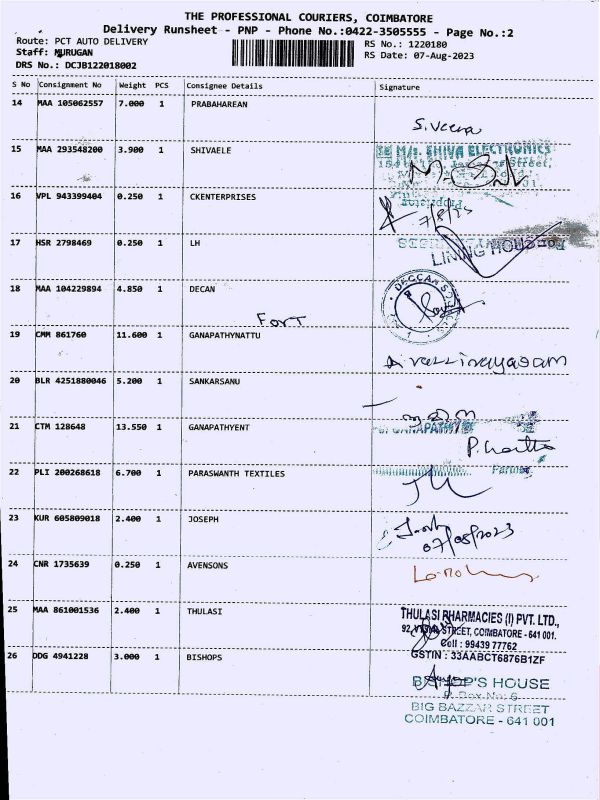 THE PROFESSIONAL COURIERS, COIMBATORE
Delivery Runsheet - PNP - Phone No.:0422-3505555 - Page No.:2
Route: PCT AUTO DELIVERY
RS No.: 1220180
Staff: MURUGAN
RS Date: 07-Aug-2023
DRS No.: DCJB122018002
S No Consignment No Weight PCS Consignee Details Signature
14 MAA 105062557 7.000 1 PRABAHAREAN
S.Veera
15 MAA 293548200 3.900 1 SHIVAELE
M/s. SHIVA ELECTRONICS
Street,
16 VPL 943399404 0.250 1 CKENTERPRISES
Proprietor
7/8/23
17 HSR 2798469 0.250 1 LH
LINING HOUSE
18 MAA 104229894 4.850 1 DECAN
DECCAN
Fort
19 CMM 861760 11.600 1 GANAPATHYNATTU
20 BLR 4251880046 5.200 1 SANKARSANU
21 CTM 128648 13.550 1 GANAPATHYENT
GANAPATHY
Partner
22 PLI 200268618 6.700 1 PARASWANTH TEXTILES
23 KUR 605809018 2.400 1 JOSEPH
07/08/2023
24 CNR 1735639 0.250 1 AVENSONS
25 MAA 861001536 2.400 1 THULASI
THULASI PHARMACIES (I) PVT. LTD.,
STREET, COIMBATORE - 641 001.
Cell : 99439 77762
GSTIN : 33AABCT6876B1ZF
26 DDG 4941228 3.000 1 BISHOPS
BISHOP'S HOUSE
P. Box No: 6
BIG BAZZAR STREET
COIMBATORE - 641 001